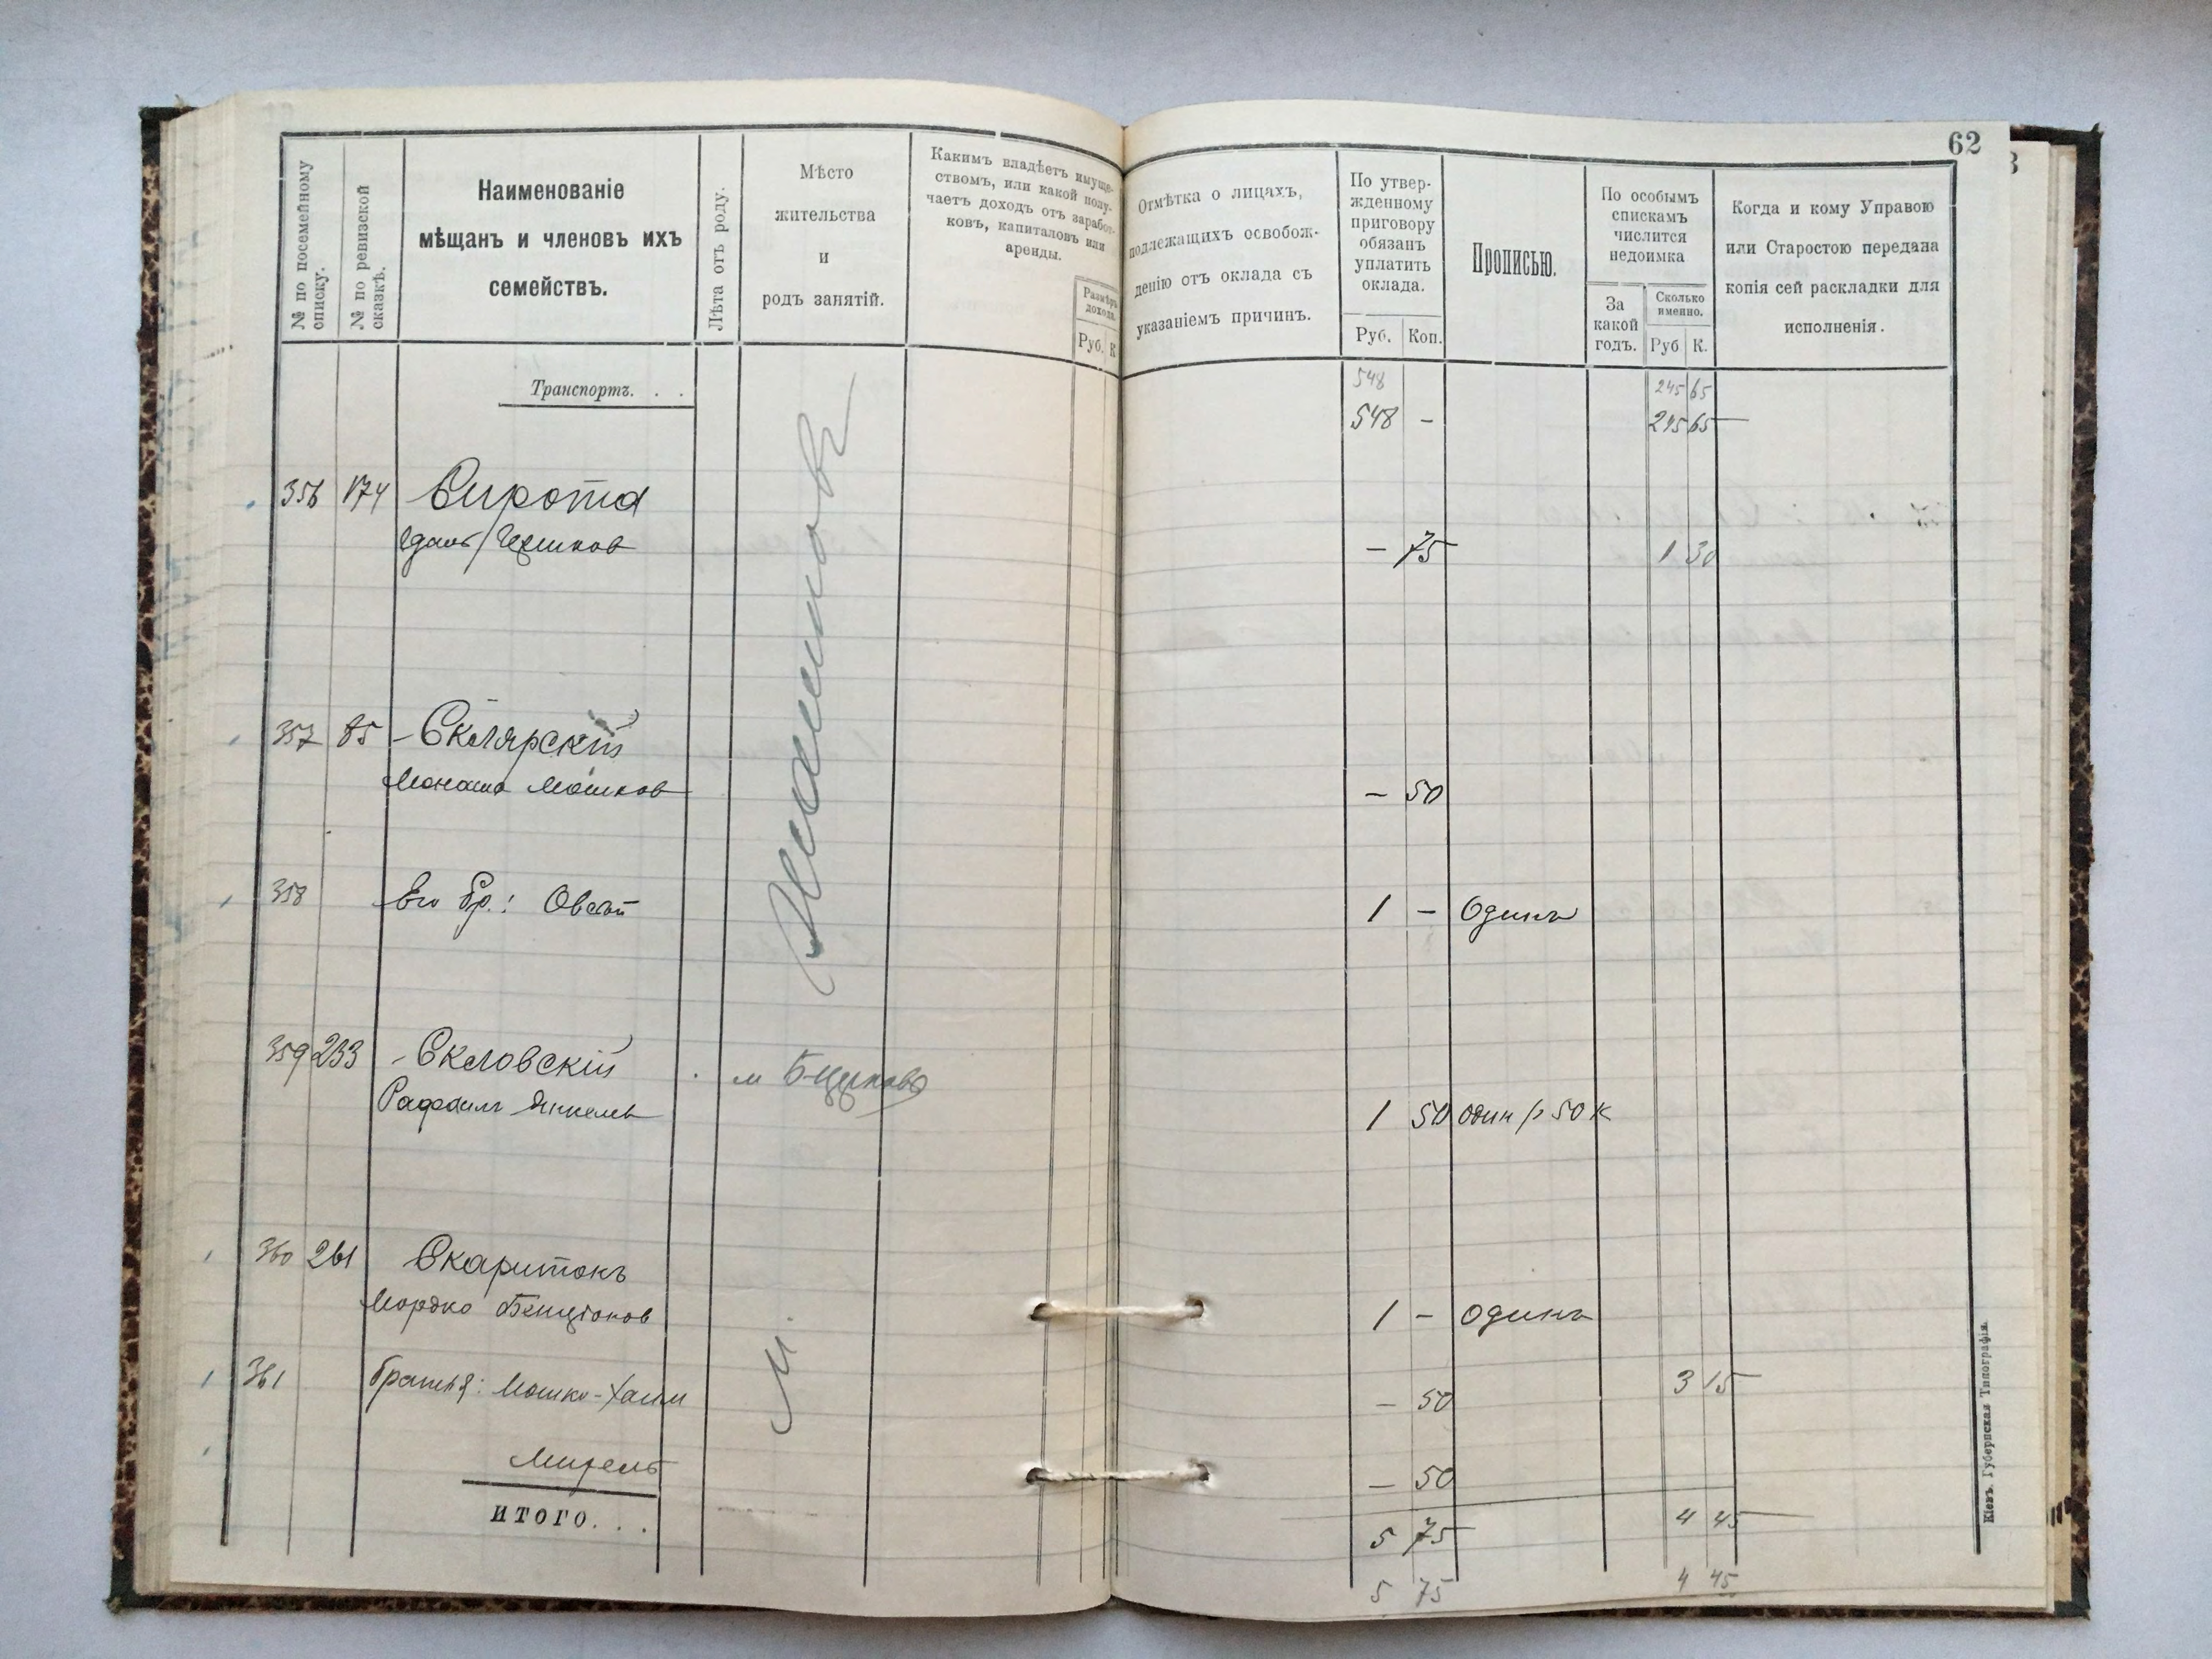 62
№ по посемейному списку.
№ по ревизской сказкѣ.
Наименованіе
мѣщанъ и членовъ ихъ
семействъ.
Лѣта отъ роду.
Мѣсто
жительства
и
родъ занятій.
Какимъ владѣетъ имуще-
ствомъ, или какой полу-
чаетъ доходъ отъ заработ-
ковъ, капиталовъ или
аренды.
Размѣръ
дохода.
Руб. К
Отмѣтка о лицахъ,
подлежащихъ освобож-
денію отъ оклада съ
указаніемъ причинъ.
По утвер-
жденному
приговору
обязанъ
уплатить
оклада.
Руб. Коп.
Прописью.
По особымъ
спискамъ
числится
недоимка
За
какой
годъ.
Сколько
именно.
Руб К.
Когда и кому Управою
или Старостою передана
копія сей раскладки для
исполненія.
Транспортъ. . .
548 245 65
548 - 245 65
356 174 Сирота
- 75 1 30
357 85 - Склярскій
Монашко Мошков - 50
358 Его бр.: Овсѣй 1 - Одинъ
359 233 - Скловскій
Рафаилъ Янкель 1 50 один р 50 к
360 261 Скаритокъ
Мордко Бенціонов 1 - один
361 братья: Мошко-Хаим - 50 3 15
- 50
ИТОГО. . . 5 75 4 45
5 75 4 45
М.
Кіевъ. Губернская Типографія.